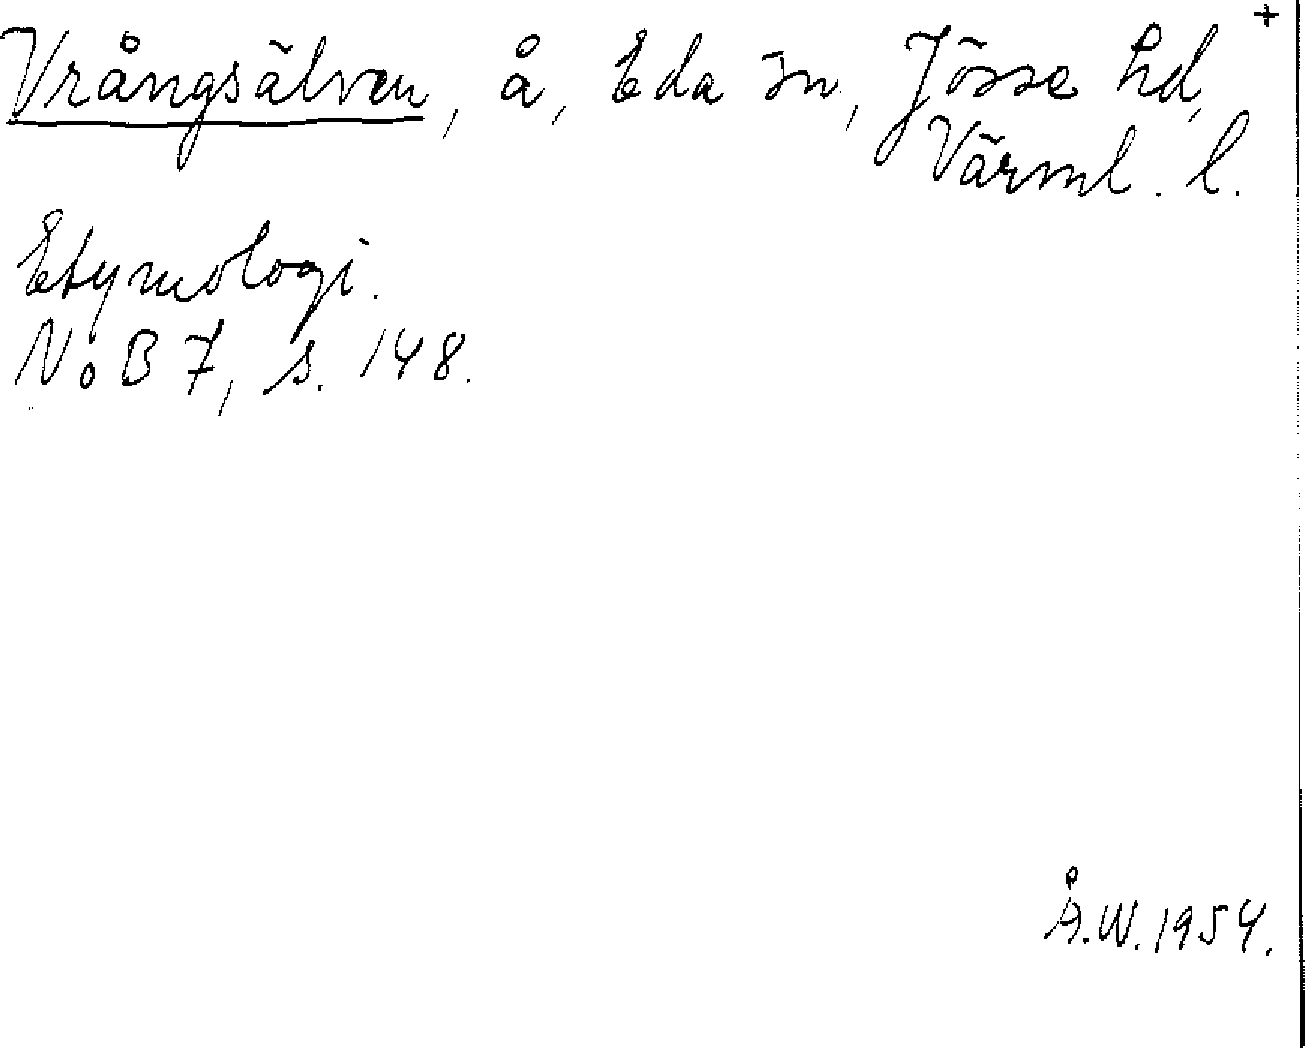 Vrångsälven, å, Eda sn, Jösse hd, +
Värml. l.
Etymologi.
NoB 7, s. 148.
Å.W. 1954.